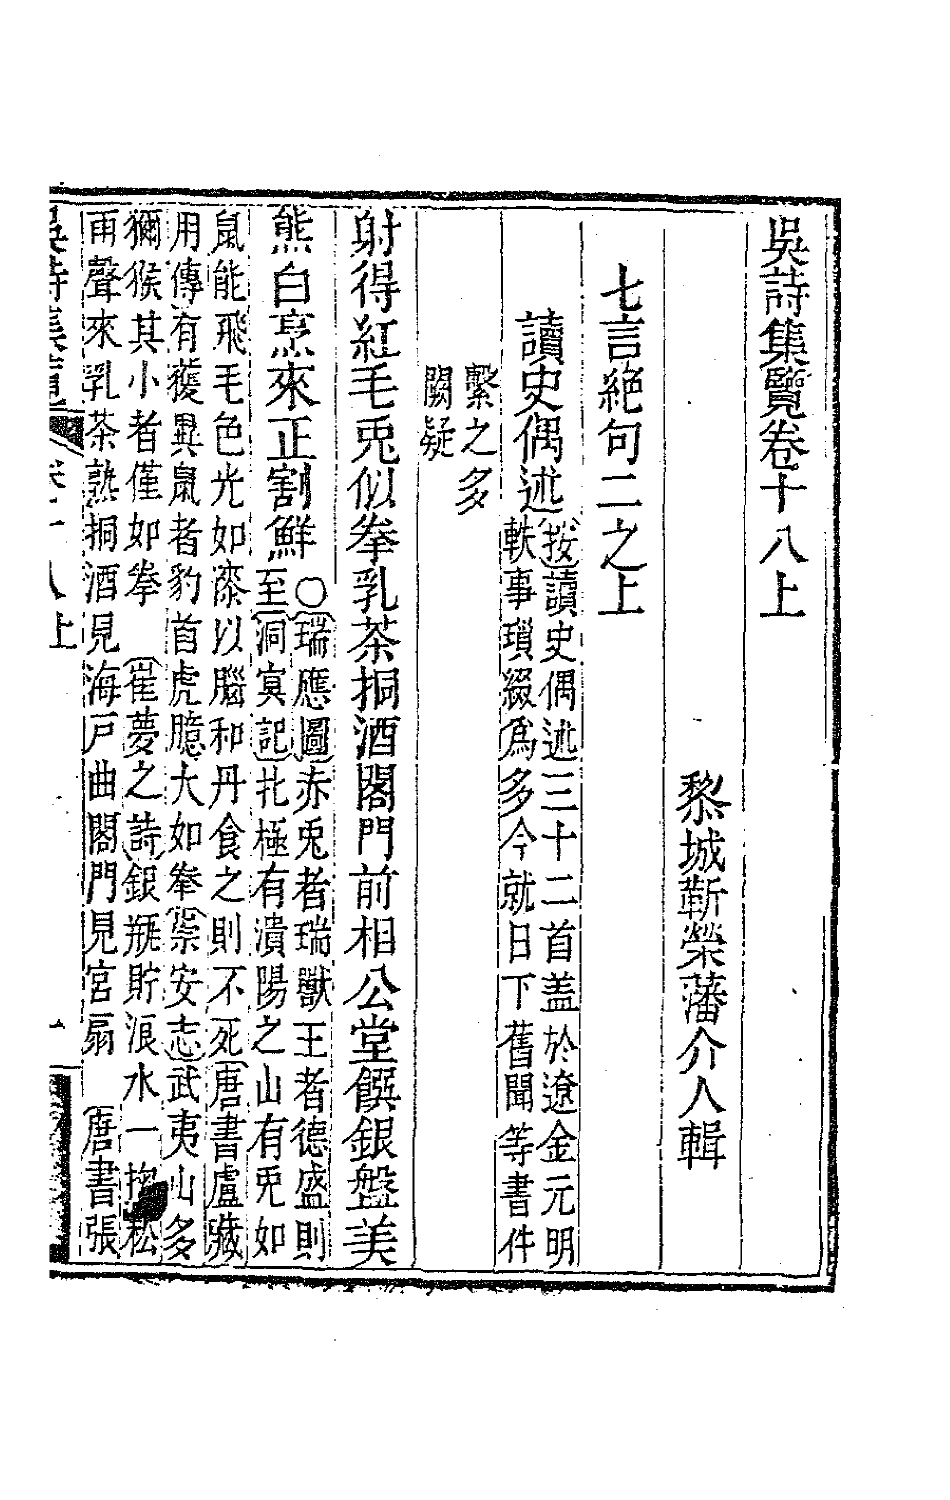 吳詩集覽卷十八上
黎城靳榮藩介人輯
七言絶句二之上
讀史偶述〔按〕讀史偶述三十二首盖於遼金元明
軼事瑣綴爲多今就日下舊聞等書件
繫之多
闕疑
射得紅毛兎似拳乳茶挏酒閣門前相公堂饌銀盤美
熊白烹來正割鮮○〔瑞應圖〕赤兎者瑞獸王者德盛則
至〔洞㝠記〕扎極有潰陽之山有兎如
鼠能飛毛色光如漆以腦和丹食之則不死〔唐書盧藏
用傳〕有獲異鼠者豹首虎臆大如拳〔崇安志〕武夷山多
獼猴其小者僅如拳〔崔夢之詩〕銀瓶貯浪水一掬松
雨聲來乳茶熟挏酒見海戸曲閣門見宮扇〔唐書張
吳詩集覽 卷十八上 一